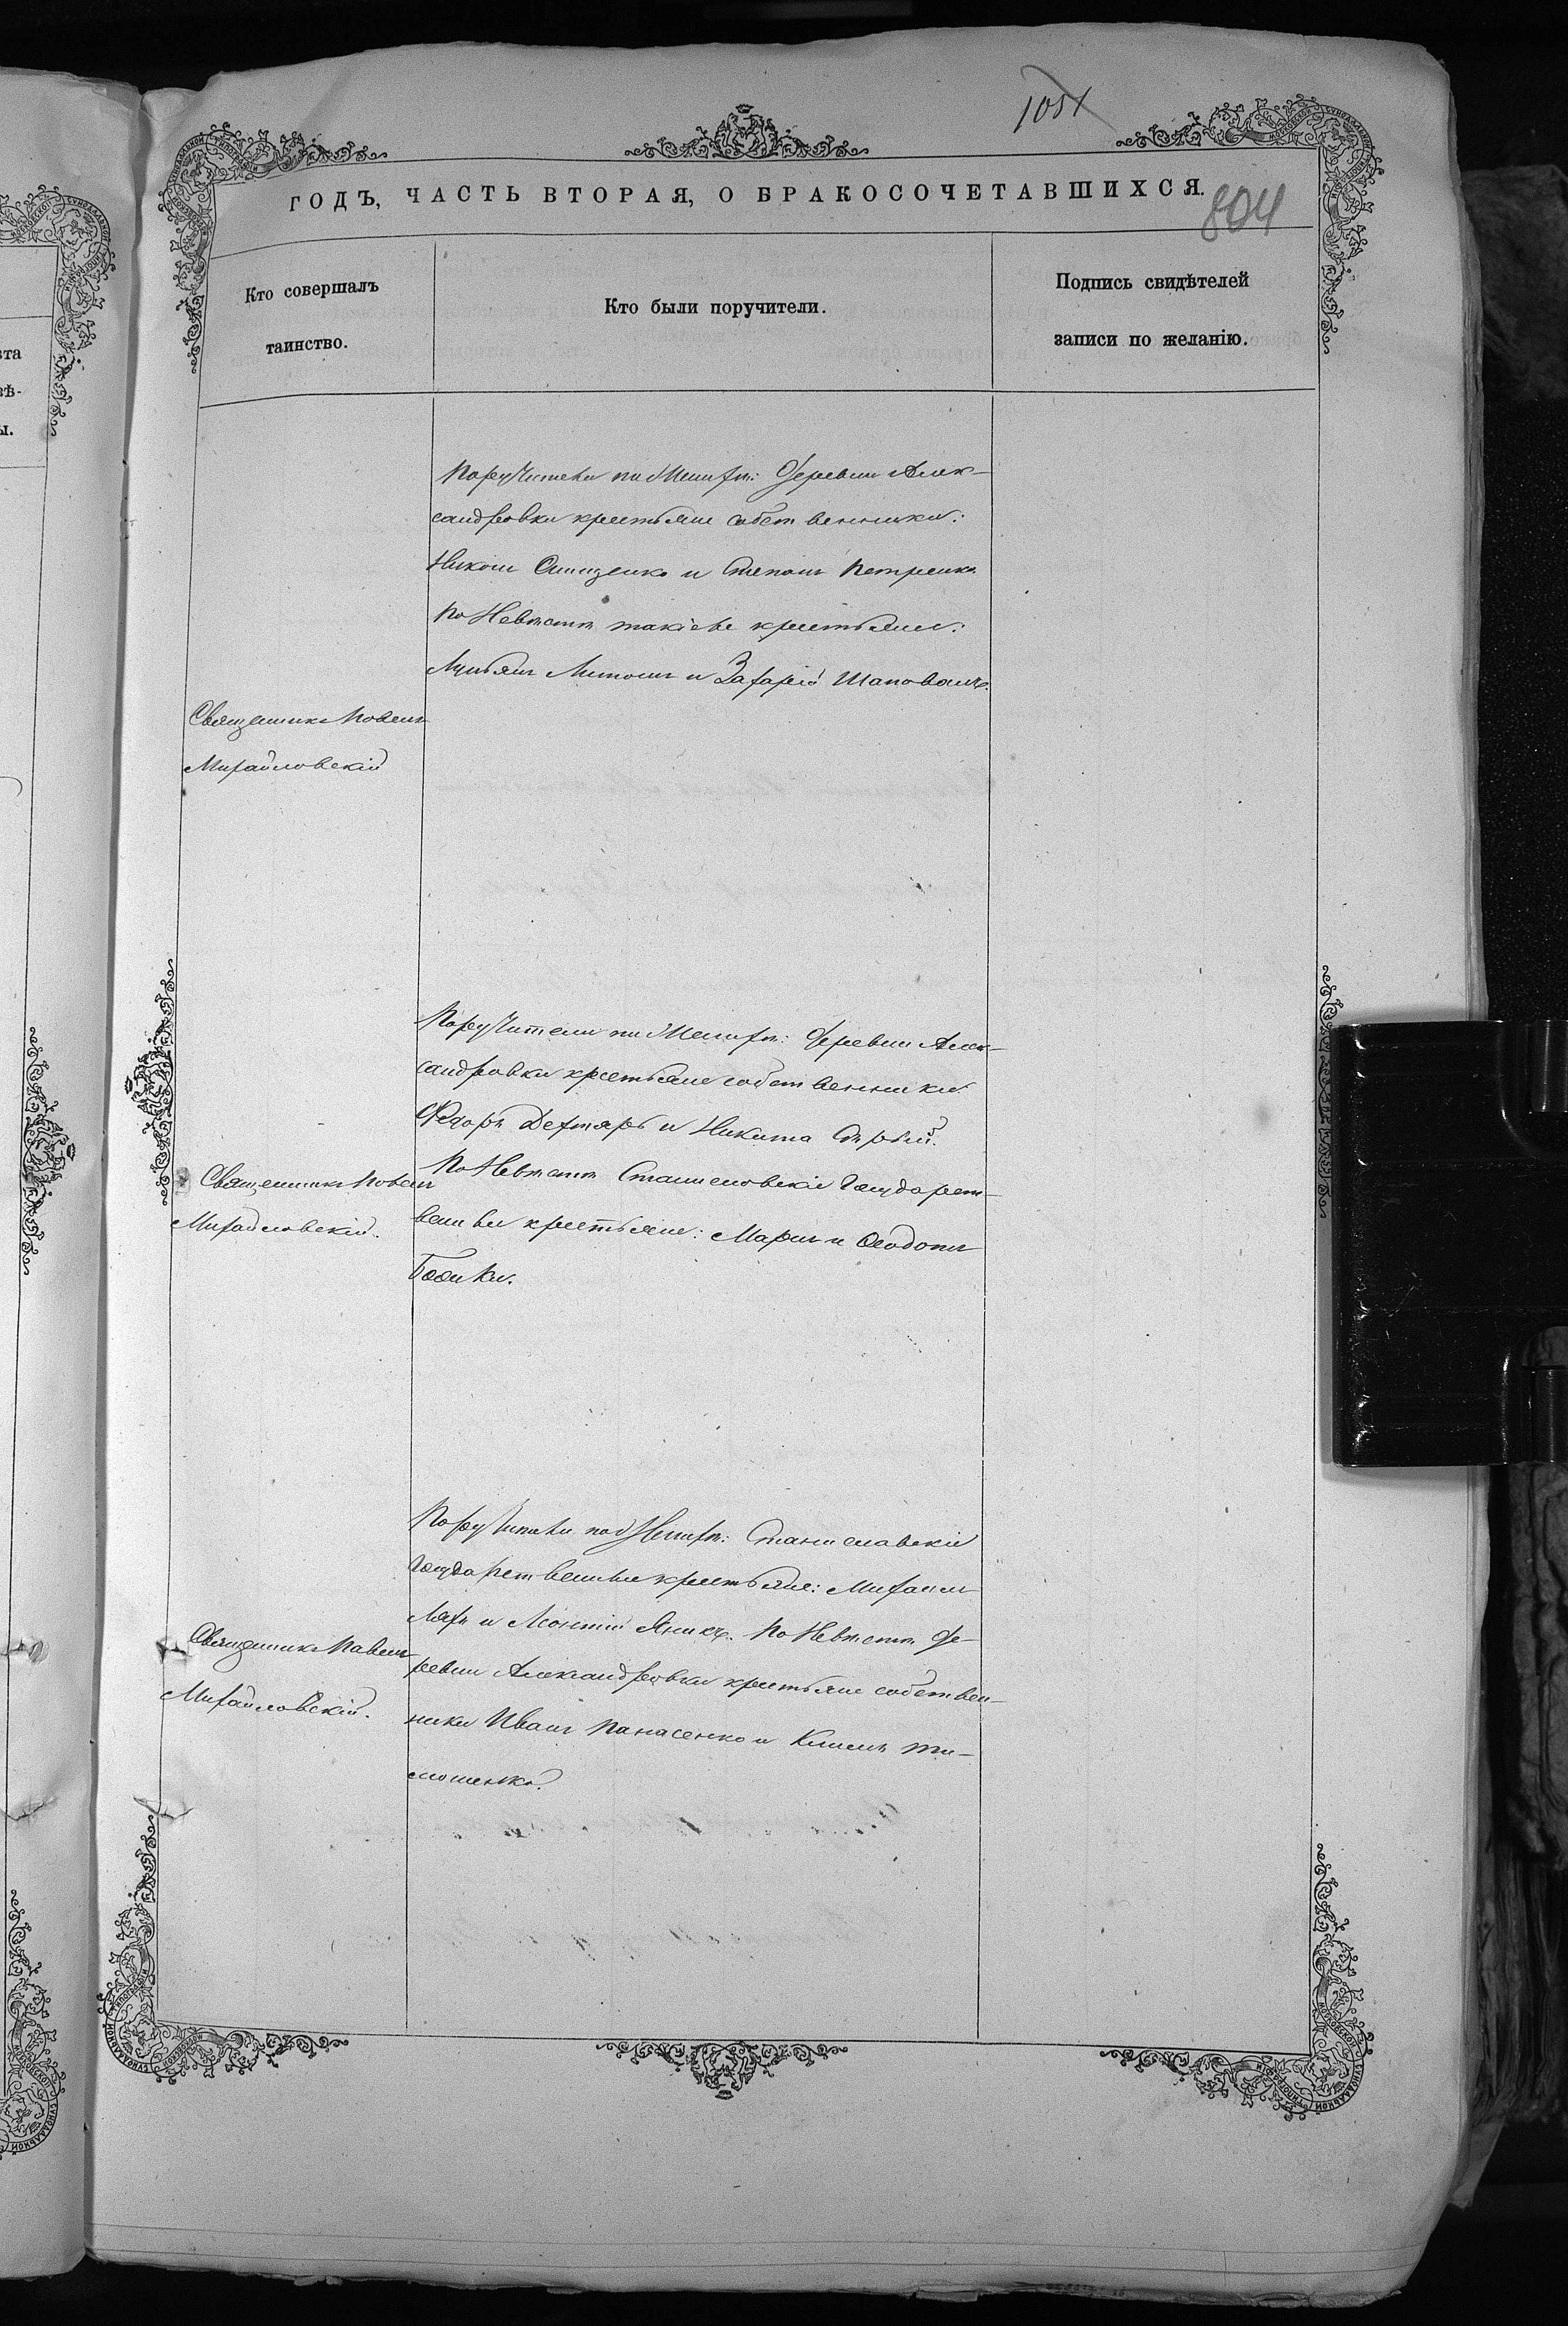 1051
ГОДЪ, ЧАСТЬ ВТОРАЯ, О БРАКОСОЧЕТАВШИХСЯ.
804
Кто совершалъ
таинство.
Кто были поручители.
Подпись свидѣтелей
записи по желанію.
Поручители по Жениху: Деревни Алек-
сандровки крестьяне собственники:
Никонъ Онищенко и Степанъ Петренко
По Невѣстѣ такіеже крестьяне:
Лукьянъ Литошъ и Захарій Шаповалъ.
Священникъ Павелъ
Михайловскій
Поручители по Жениху: Деревни Алек-
сандровки крестьяне собственники
Федоръ Дехтярь и Никита Сѣрый.
По Невѣстѣ Станиславскіе Государст-
венные крестьяне: Маркъ и Федотъ
Священникъ Павелъ
Михайловскій.
Поручители по Жениху: Станиславскіе
Государственные крестьяне: Михаилъ
Ляхъ и Леонтій Яникъ. По Невѣстѣ Де-
ревни Александровки крестьяне собствен-
ники Иванъ Панасенко и Климъ Ти-
мошенко.
Священникъ Павелъ
Михайловскій.